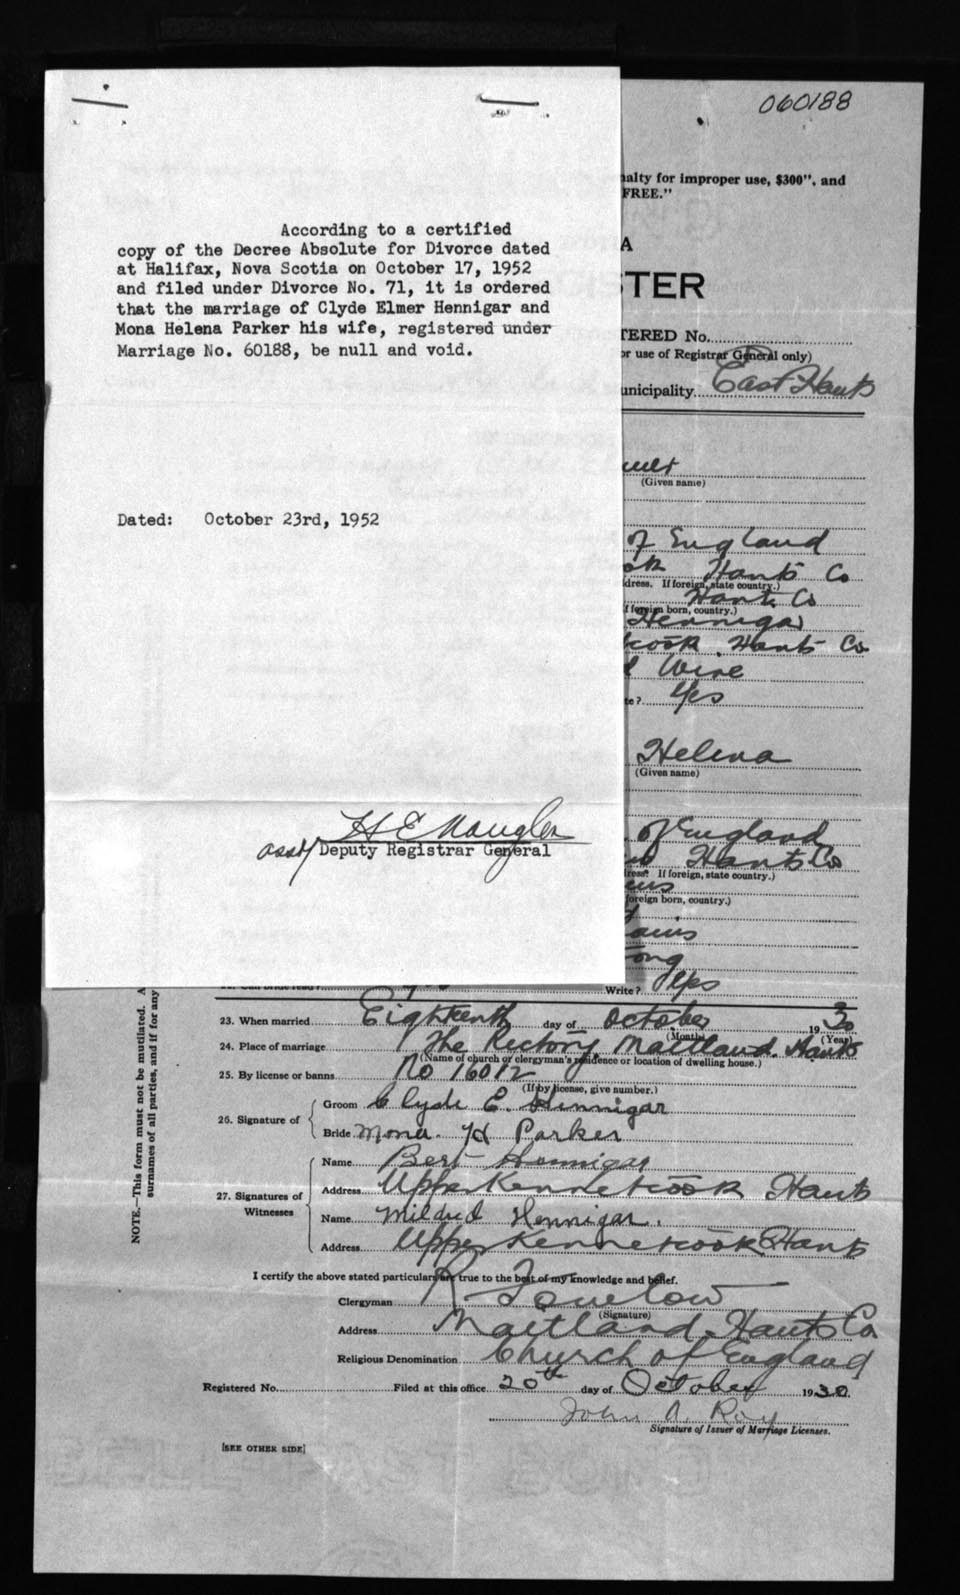 060188
According to a certified
copy of the Decree Absolute for Divorce dated
at Halifax, Nova Scotia on October 17, 1952
and filed under Divorce No. 71, it is ordered
that the marriage of Clyde Elmer Hennigar and
Mona Helena Parker his wife, registered under
Marriage No. 60188, be null and void.
Dated: October 23rd, 1952
H E Naugler
asst/ Deputy Registrar General
alty for improper use, $300", and
FREE."
A
STER
TERED No.
or use of Registrar General only)
unicipality East Hants
(Given name)
of England
Hants Co
dress. If foreign, state country.)
Hants Co
f foreign born, country.)
Hennigar
cook. Hants Co
Wire
te? Yes
Helena
(Given name)
of England
Hants Co
ress. If foreign, state country.)
foreign born, country.)
Write? Yes
23. When married Eighteenth day of October 1930
(Month) (Year)
24. Place of marriage The Rectory Maitland. Hants
(Name of church or clergyman's residence or location of dwelling house.)
25. By license or banns No 16012
(If by license, give number.)
26. Signature of
Groom Clyde E. Hennigar
Bride Mona H Parker
27. Signatures of Witnesses
Name Bert Hennigar
Address Upper Kennetcook Hants
Name Mildred Hennigar.
Address Upper Kennetcook Hants
I certify the above stated particulars are true to the best of my knowledge and belief.
Clergyman R
(Signature)
Address Maitland. Hants Co
Religious Denomination Church of England
Registered No. Filed at this office 20th day of October 1930
John A. Roy
Signature of Issuer of Marriage Licenses.
[SEE OTHER SIDE]
NOTE.—This form must not be mutilated. A
surnames of all parties, and if for any